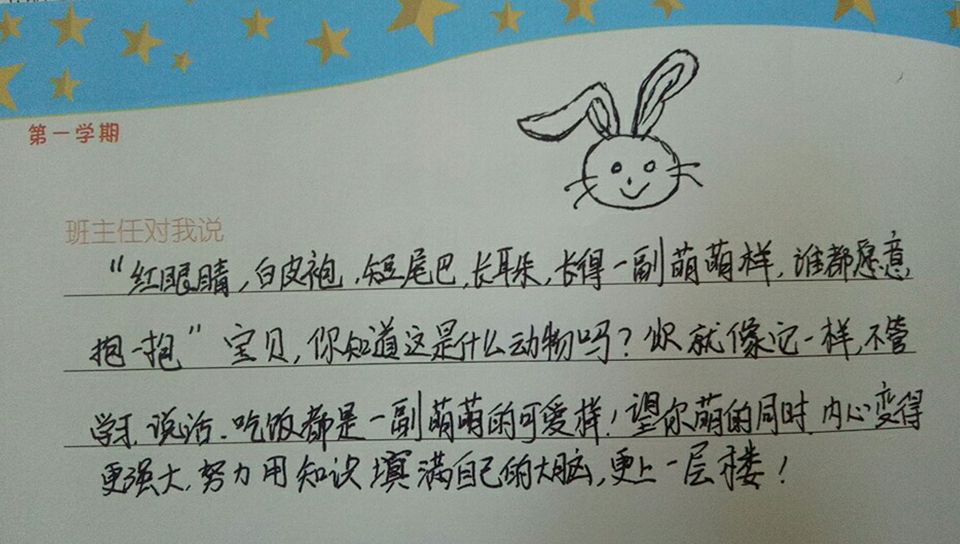 第一学期
班主任对我说
“红眼睛，白皮袍，短尾巴，长耳朵，长得一副萌萌样，谁都愿意
抱一抱”宝贝，你知道这是什么动物吗？你就像它一样，不管
学习、说话、吃饭都是一副萌萌的可爱样！望你萌的同时，内心变得
更强大，努力用知识填满自己的大脑，更上一层楼！